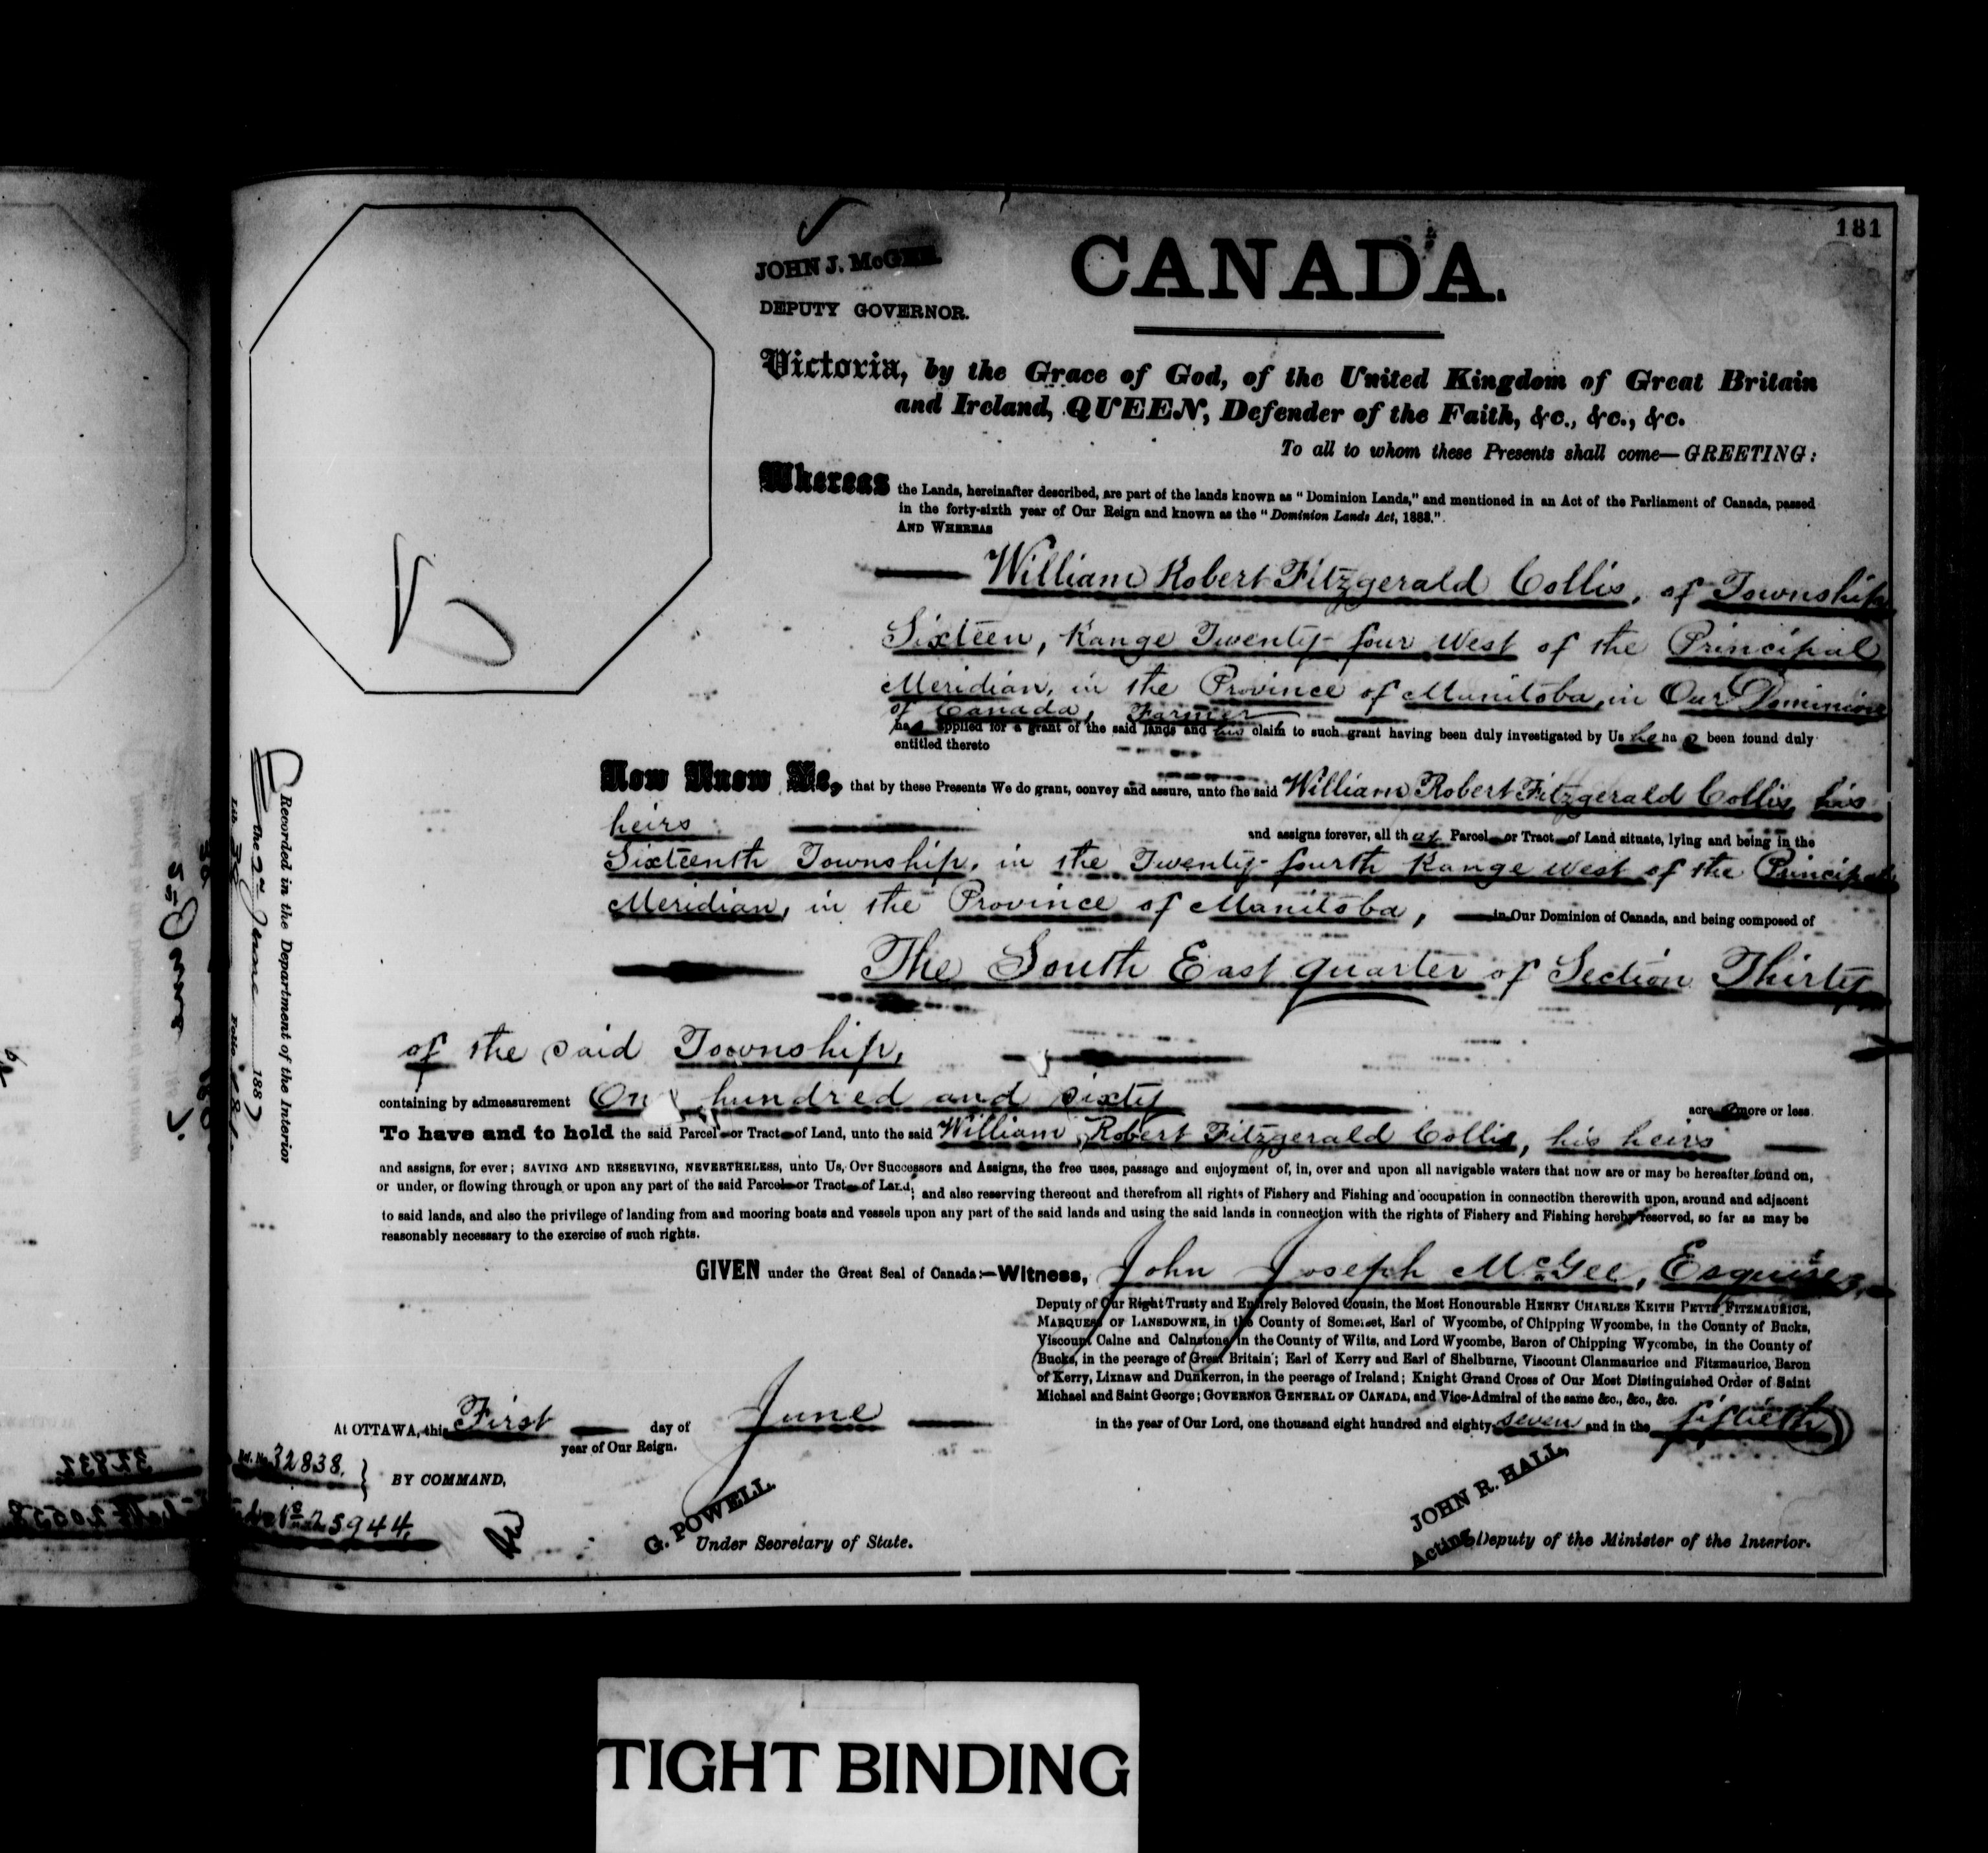 181
JOHN J. McGEE.
DEPUTY GOVERNOR.
CANADA.
Victoria, by the Grace of God, of the United Kingdom of Great Britain
and Ireland, QUEEN, Defender of the Faith, &c., &c., &c.
To all to whom these Presents shall come—GREETING:
Whereas the Lands, hereinafter described, are part of the lands known as "Dominion Lands," and mentioned in an Act of the Parliament of Canada, passed
in the forty-sixth year of Our Reign and known as the "Dominion Lands Act, 1883."
AND WHEREAS
William Robert Fitzgerald Collis, of Township
Sixteen, Range Twenty-four West of the Principal
Meridian, in the Province of Manitoba, in Our Dominion
of Canada, Farmer
has applied for a grant of the said lands and his claim to such grant having been duly investigated by Us he ha s been found duly
entitled thereto
Now Know Ye, that by these Presents We do grant, convey and assure, unto the said William Robert Fitzgerald Collis, his
heirs and assigns forever, all that Parcel or Tract of Land situate, lying and being in the
Sixteenth Township, in the Twenty-fourth Range West of the Principal
Meridian, in the Province of Manitoba, in Our Dominion of Canada, and being composed of
The South East quarter of Section Thirty
of the said Township,
containing by admeasurement One hundred and sixty acres more or less.
To have and to hold the said Parcel or Tract of Land, unto the said William Robert Fitzgerald Collis, his heirs
and assigns, for ever; SAVING AND RESERVING, NEVERTHELESS, unto Us, Our Successors and Assigns, the free uses, passage and enjoyment of, in, over and upon all navigable waters that now are or may be hereafter found on,
or under, or flowing through or upon any part of the said Parcel or Tract of Land; and also reserving thereout and therefrom all rights of Fishery and Fishing and occupation in connection therewith upon, around and adjacent
to said lands, and also the privilege of landing from and mooring boats and vessels upon any part of the said lands and using the said lands in connection with the rights of Fishery and Fishing hereby reserved, so far as may be
reasonably necessary to the exercise of such rights.
GIVEN under the Great Seal of Canada:—Witness, John Joseph McGee, Esquire,
Deputy of Our Right Trusty and Entirely Beloved Cousin, the Most Honourable HENRY CHARLES KEITH PETTY FITZMAURICE,
MARQUESS OF LANSDOWNE, in the County of Somerset, Earl of Wycombe, of Chipping Wycombe, in the County of Bucks,
Viscount Calne and Calnstone in the County of Wilts, and Lord Wycombe, Baron of Chipping Wycombe, in the County of
Bucks, in the peerage of Great Britain; Earl of Kerry and Earl of Shelburne, Viscount Clanmaurice and Fitzmaurice, Baron
of Kerry, Lixnaw and Dunkerron, in the peerage of Ireland; Knight Grand Cross of Our Most Distinguished Order of Saint
Michael and Saint George; GOVERNOR GENERAL OF CANADA, and Vice-Admiral of the same &c., &c., &c.
At OTTAWA, this First day of June in the year of Our Lord, one thousand eight hundred and eighty-seven and in the fiftieth
year of Our Reign.
32838.
BY COMMAND,
25944.
G. POWELL.
Under Secretary of State.
JOHN R. HALL,
Acting Deputy of the Minister of the Interior.
Recorded in the Department of the Interior
the 2nd June 1887
TIGHT BINDING